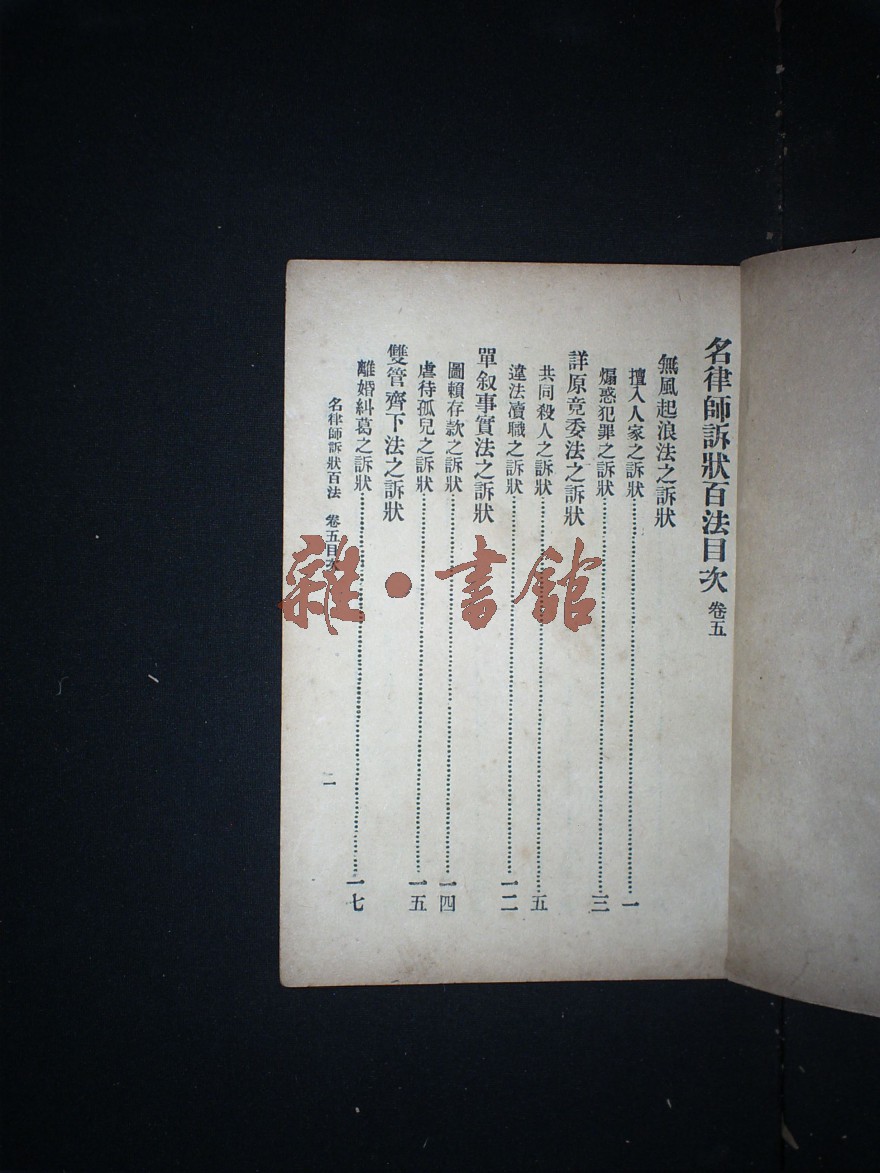 名律師訴狀百法目次 卷五
無風起浪法之訴狀
擅入人家之訴狀 一
煽惑犯罪之訴狀 三
詳原竟委法之訴狀
共同殺人之訴狀 五
違法瀆職之訴狀 一二
單叙事實法之訴狀
圖賴存款之訴狀 一四
虐待孤兒之訴狀 一五
雙管齊下法之訴狀
離婚糾葛之訴狀 一七
名律師訴狀百法 卷五目次 一
雜·書館